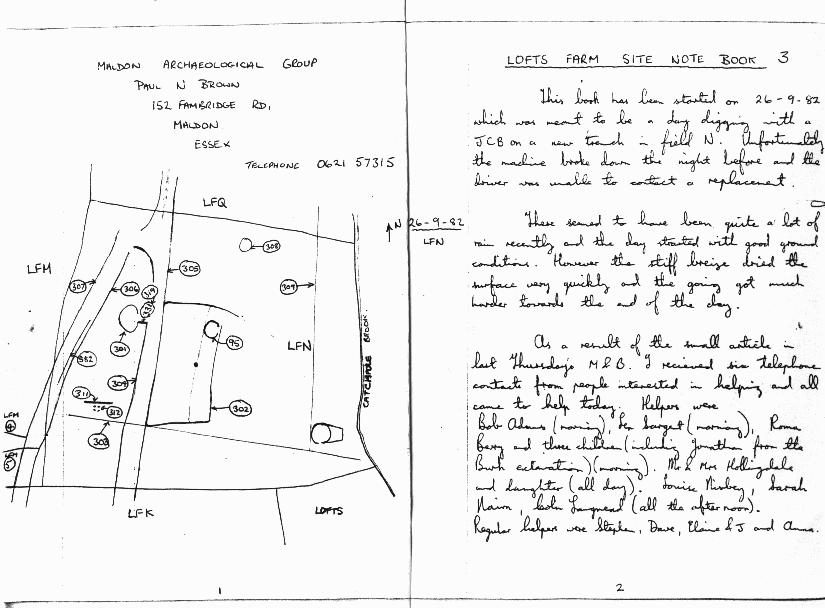 MALDON ARCHAEOLOGICAL GROUP
PAUL N BROWN
152 FAMBRIDGE RD,
MALDON
ESSEX
TELEPHONE 0621 57315
LFQ
N
LFM
308
305
307
306
304
301
95
LFN
CATCHPOLE BROOK
352
309
311
312
302
303
LFM
LFK
LOFTS
1
LOFTS FARM SITE NOTE BOOK 3
This book has been started on 26-9-82
which was meant to be a day digging with a
JCB on a new trench in field N. Unfortunately
the machine broke down the night before and the
driver was unable to contact a replacement.
26-9-82
LFN
There seemed to have been quite a lot of
rain recently and the day started with good ground
conditions. However the stiff breeze dried the
surface very quickly and the going got much
harder towards the end of the day.
As a result of the small article in
last Thursday's M & B. I recieved six telephone
contacts from people interested in helping and all
came to help today. Helpers were
Bob Adams (morning), Ken Sargent (morning), Roma
Berry and three children (including Jonathan from the
Burh excavation) (morning). Mr & Mrs Hollingdale
and daughter (all day). Louise Nimbey, Sarah
Nairn, Colin (all the afternoon).
Regular helpers were Stephen, Dave, Elaine & J and Anna.
2